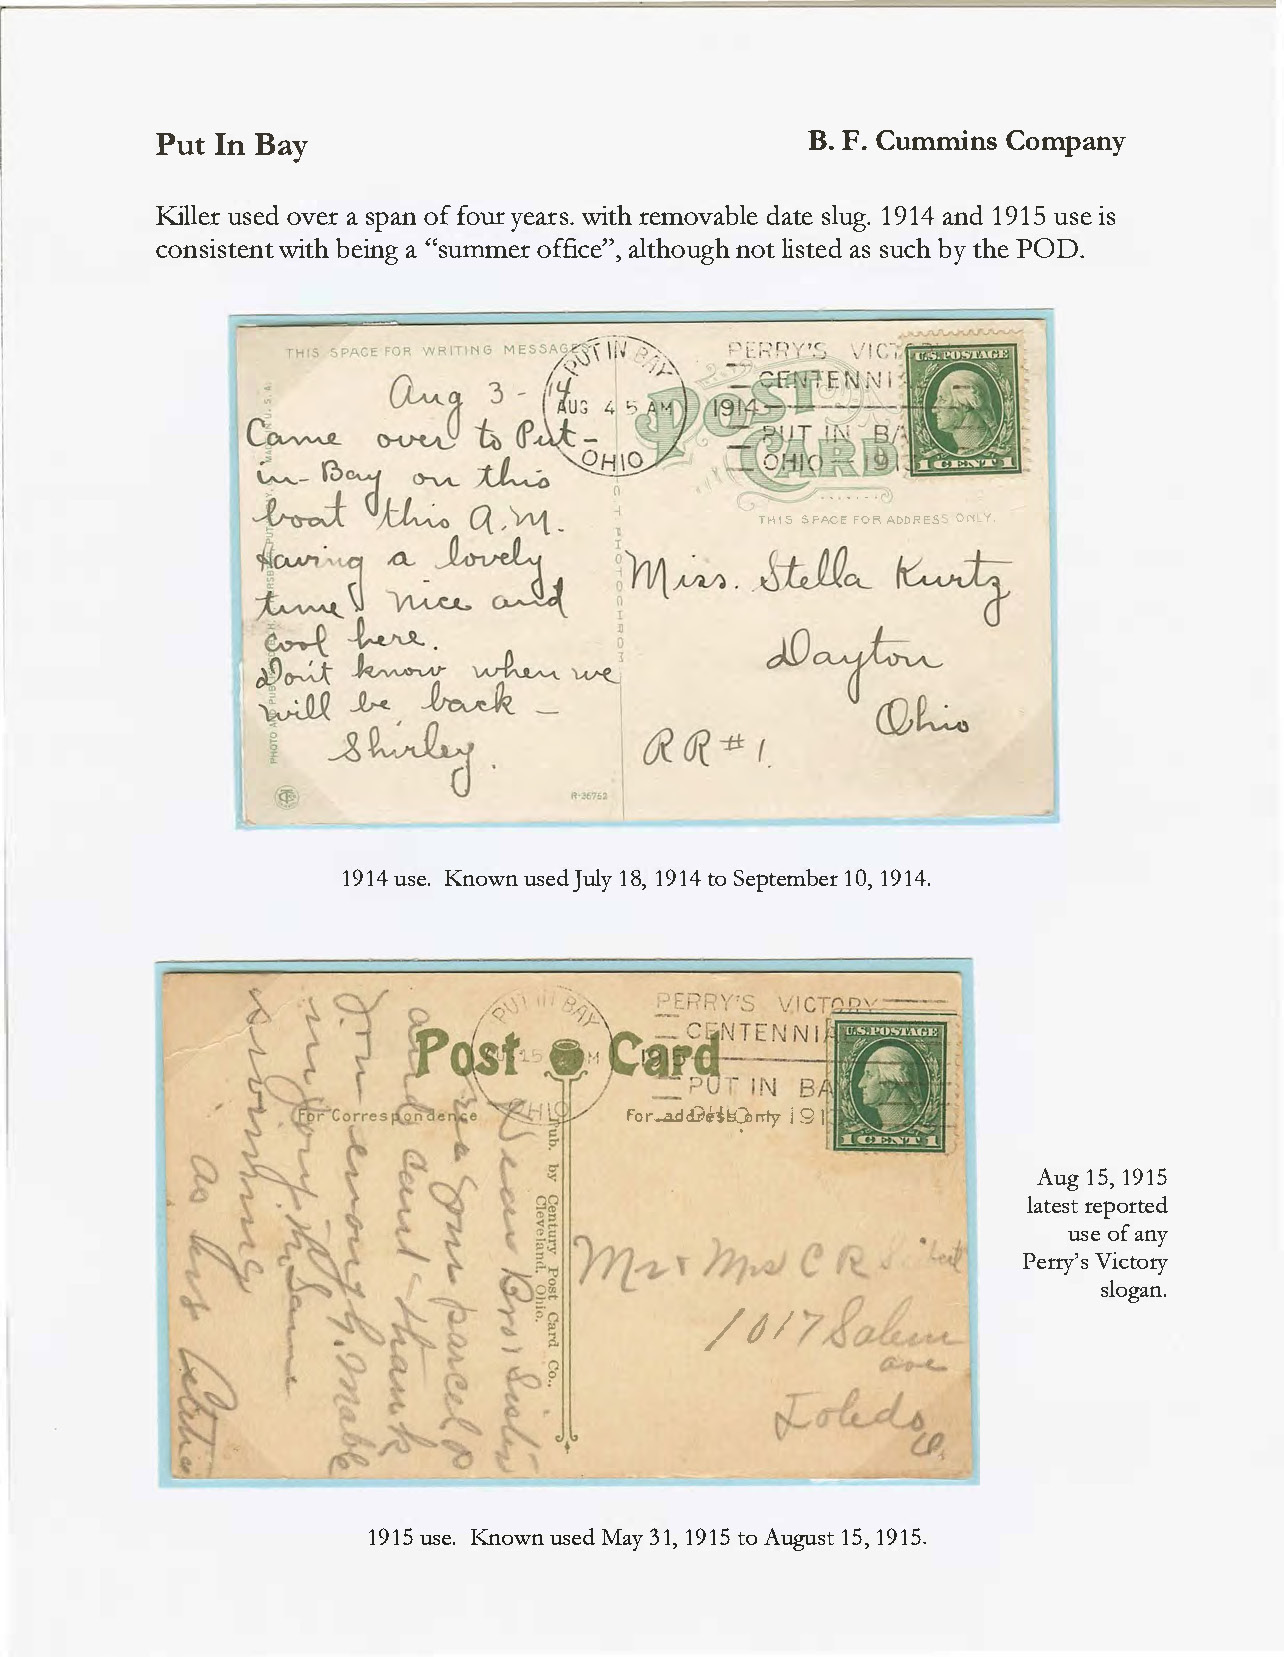 Put In Bay
B. F. Cummins Company
Killer used over a span of four years. with removable date slug. 1914 and 1915 use is
consistent with being a "summer office", although not listed as such by the POD.
THIS SPACE FOR WRITING MESSAGES
Aug 3 - 14
Came over to Put-
in-Bay on this
boat this A.M.
Having a lovely
time! nice and
cool here.
Don't know when we
will be back –
Shirley.
R-36762
PUT IN BAY
AUG 4 5 AM
OHIO
PERRY'S VICT
CENTENNI
1914
PUT IN BA
OHIO 191
U.S. POSTAGE
1 CENT 1
POST
CARD
THIS SPACE FOR ADDRESS ONLY.
Miss. Stella Kurtz
Dayton
Ohio
RR # 1.
1914 use. Known used July 18, 1914 to September 10, 1914.
PUT IN BAY
AUG 15 M
OHIO
PERRY'S VICTORY
CENTENNIA
1915
PUT IN BA
OHIO 191
U.S. POSTAGE
1 CENT 1
Post Card
For Correspondence
For address only
Pub. by Century Post Card Co.,
Cleveland, Ohio.
Dear Bro & Sister
parcel
and cant thank
you enough. Mable
the same
as
Mr & Mrs C R
1017 Salem
ave
Toledo
O.
Aug 15, 1915
latest reported
use of any
Perry's Victory
slogan.
1915 use. Known used May 31, 1915 to August 15, 1915.